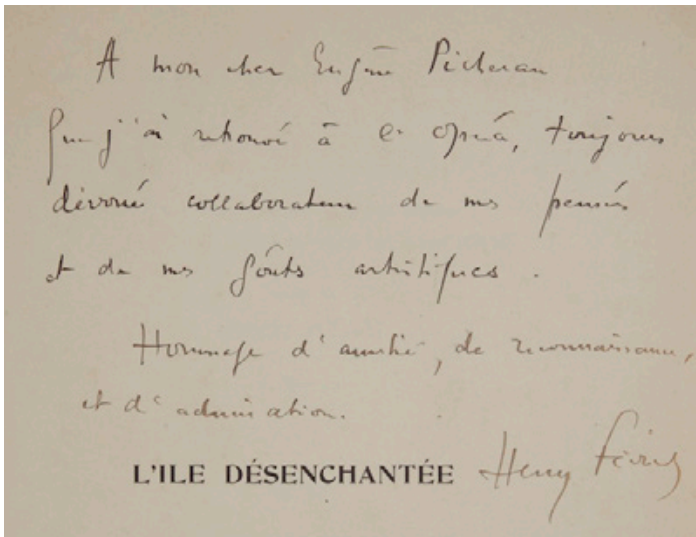 A mon cher Eugène Picheran
que j'ai retrouvé à l'opéra, toujours
dévoué collaborateur de mes pensées
et de mes goûts artistiques.
Hommage d'amitié, de reconnaissance,
et d'admiration.
L'ILE DÉSENCHANTÉE Henry Février